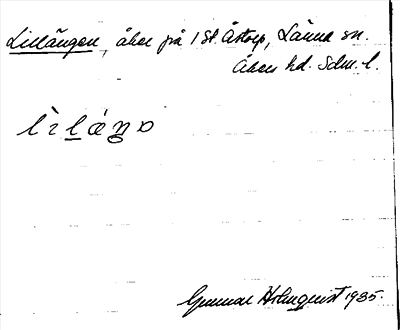 Lillängen, åker på 1 St. Åttorp, Länna sn.
Åkers hd. Sdm. l.
lìlǽŋɔ
Gunnar Holmquist 1935.